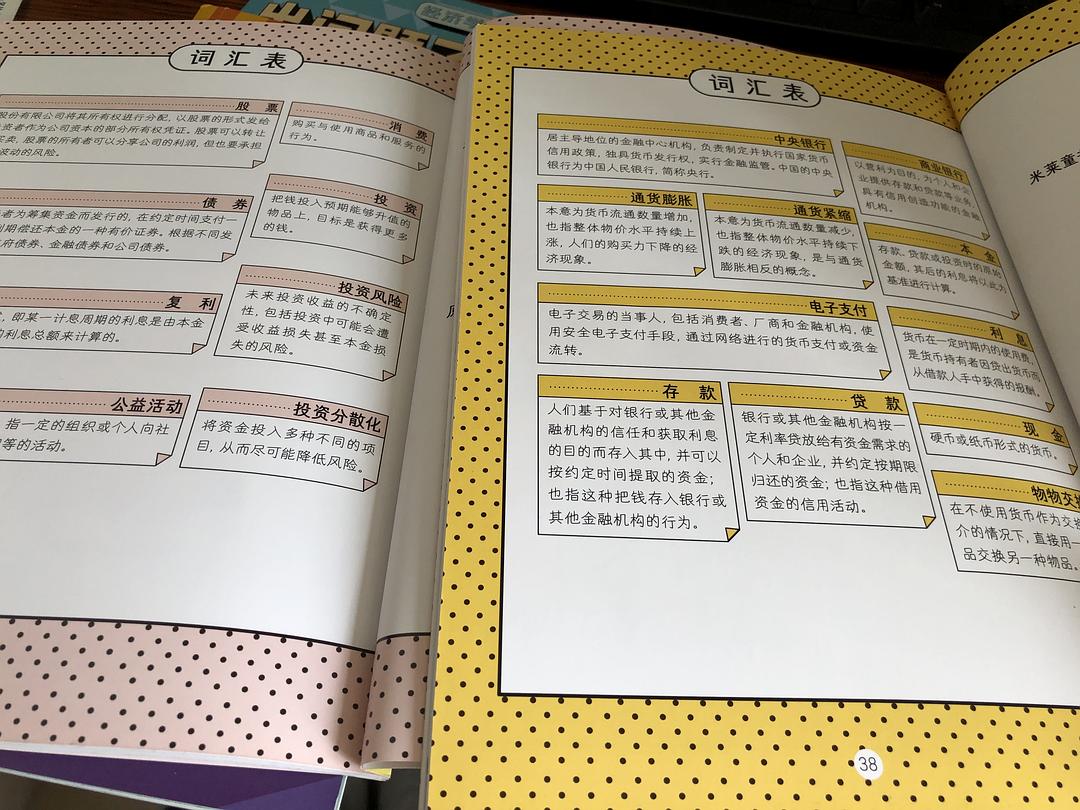 词汇表
股票
股份有限公司将其所有权进行分配，以股票的形式发给
资者作为公司资本的部分所有权凭证。股票可以转让
买卖，股票的所有者可以分享公司的利润，但也要承担
波动的风险。
消费
购买与使用商品和服务的
行为。
债券
者为筹集资金而发行的，在约定时间支付一
期偿还本金的一种有价证券。根据不同发
府债券、金融债券和公司债券。
投资
把钱投入预期能够升值的
物品上，目标是获得更多
的钱。
复利
，即某一计息周期的利息是由本金
利息总额来计算的。
投资风险
未来投资收益的不确定
性，包括投资中可能会遭
受收益损失甚至本金损
失的风险。
公益活动
指一定的组织或个人向社
等的活动。
投资分散化
将资金投入多种不同的项
目，从而尽可能降低风险。
词汇表
中央银行
居主导地位的金融中心机构，负责制定并执行国家货币
信用政策，独具货币发行权，实行金融监管。中国的中央
银行为中国人民银行，简称央行。
商业银行
以营利为目的，为个人和企
业提供存款和贷款等业务，
具有信用创造功能的金融
机构。
通货膨胀
本意为货币流通数量增加，
也指整体物价水平持续上
涨，人们的购买力下降的经
济现象。
通货紧缩
本意为货币流通数量减少，
也指整体物价水平持续下
跌的经济现象，是与通货
膨胀相反的概念。
本金
存款、贷款或投资时的原始
金额，其后的利息将以此为
基准进行计算。
电子支付
电子交易的当事人，包括消费者、厂商和金融机构，使
用安全电子支付手段，通过网络进行的货币支付或资金
流转。
利息
货币在一定时期内的使用费，
是货币持有者因贷出货币而
从借款人手中获得的报酬。
存款
人们基于对银行或其他金
融机构的信任和获取利息
的目的而存入其中，并可以
按约定时间提取的资金；
也指这种把钱存入银行或
其他金融机构的行为。
贷款
银行或其他金融机构按一
定利率贷放给有资金需求的
个人和企业，并约定按期限
归还的资金；也指这种借用
资金的信用活动。
现金
硬币或纸币形式的货币。
物物交换
在不使用货币作为交换
介的情况下，直接用一
品交换另一种物品。
38
米莱童